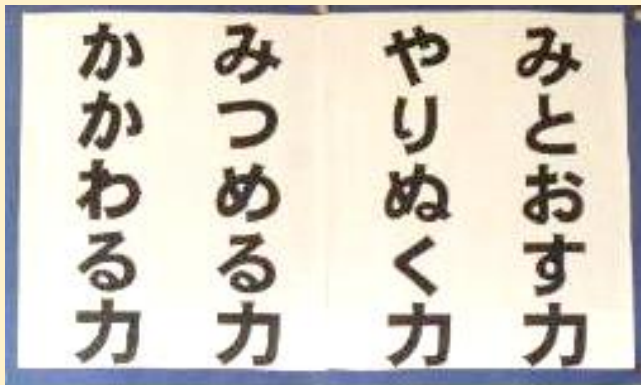 みとおす力
やりぬく力
みつめる力
かかわる力